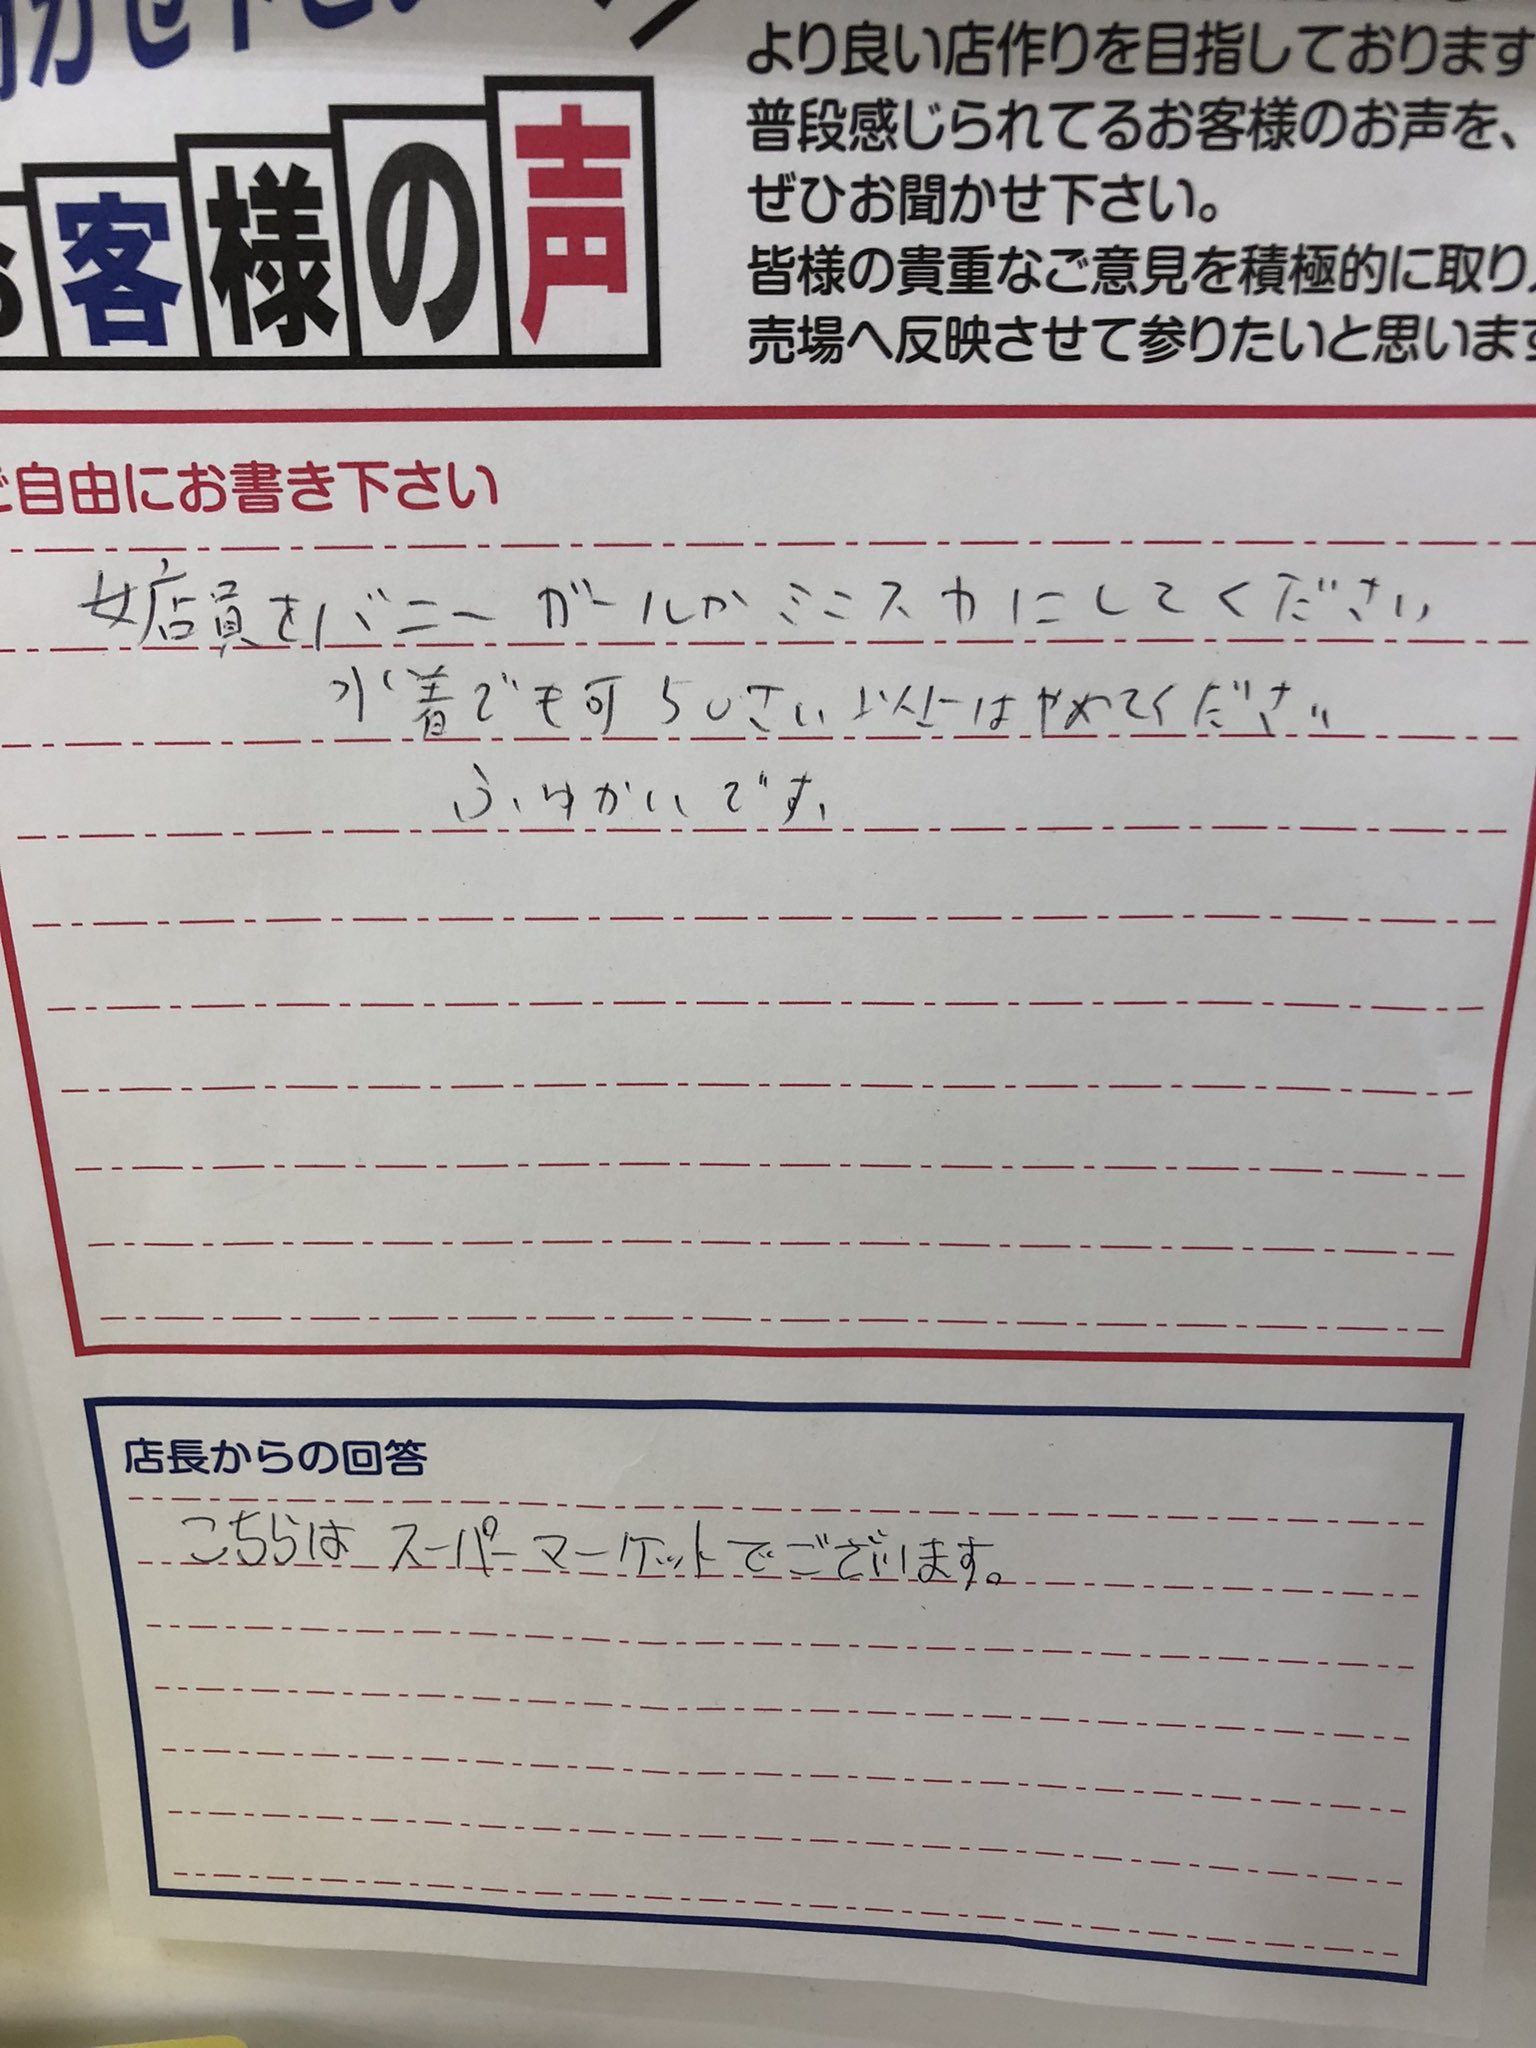 より良い店作りを目指しております
お客様の声
普段感じられてるお客様のお声を、
ぜひお聞かせ下さい。
皆様の貴重なご意見を積極的に取り
売場へ反映させて参りたいと思います
ご自由にお書き下さい
女店員をバニーガールかミニスカにしてください
水着でも可 50さい以上はやめてください
ふゆかいです。
店長からの回答
こちらはスーパーマーケットでございます。